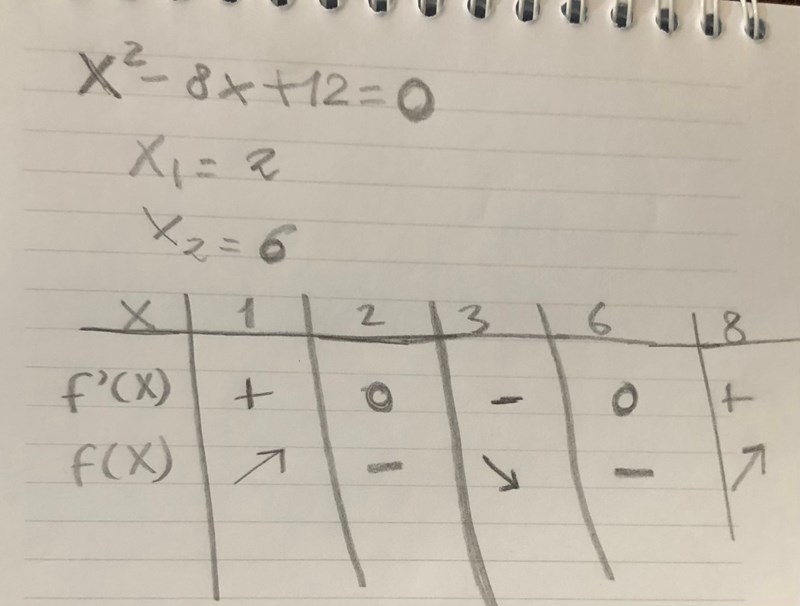 x² - 8x + 12 = 0
x₁ = 2
x₂ = 6
x | 1 | 2 | 3 | 6 | 8
f'(x) | + | 0 | - | 0 | +
f(x) | ↗ | - | ↘ | - | ↗